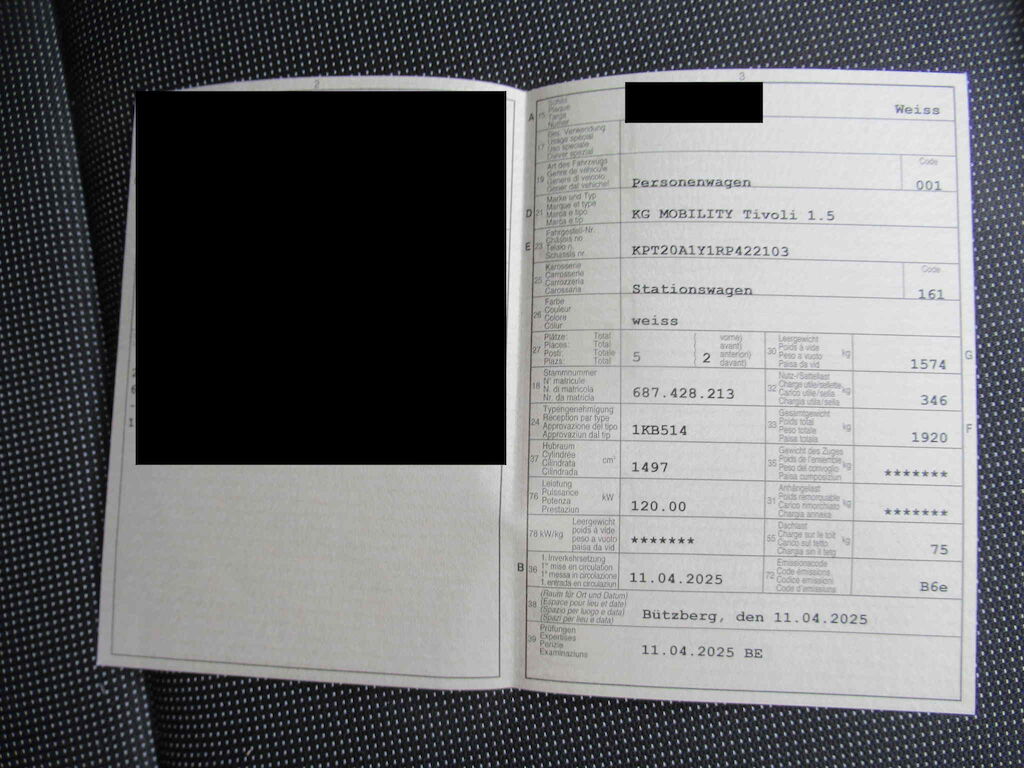 2
3
A 15 Schild
Plaque
Targa
Numer
Weiss
17 Bes. Verwendung
Usage spécial
Uso speciale
Diever spezial
19 Art des Fahrzeugs
Genre de véhicule
Genere di veicolo
Gener dal vehichel
Personenwagen
Code
001
D 21 Marke und Typ
Marque et type
Marca e tipo
Marca e tip
KG MOBILITY Tivoli 1.5
E 23 Fahrgestell-Nr.
Châssis no
Telaio n.
Schassis nr.
KPT20A1Y1RP422103
25 Karosserie
Carrosserie
Carrozzeria
Carossaria
Stationswagen
Code
161
26 Farbe
Couleur
Colore
Colur
weiss
27 Plätze: Total
Places: Total
Posti: Totale
Plazs: Total
5
2
vorne)
avant)
anteriori)
davant)
30 Leergewicht
Poids à vide
Peso a vuoto
Paisa da vid
kg
1574
G
18 Stammnummer
N° matricule
N. di matricola
Nr. da matricla
687.428.213
32 Nutz-/Sattellast
Charge utile/sellette
Carico utile/sella
Chargia utila/sella
kg
346
24 Typengenehmigung
Réception par type
Approvazione del tipo
Approvaziun dal tip
1KB514
33 Gesamtgewicht
Poids total
Peso totale
Paisa totala
kg
1920
F
37 Hubraum
Cylindrée
Cilindrata
Cilindrada
cm³
1497
35 Gewicht des Zuges
Poids de l'ensemble
Peso del convoglio
Paisa cumposiziun
kg
*******
76 Leistung
Puissance
Potenza
Prestaziun
kW
120.00
31 Anhängelast
Poids remorquable
Carico rimorchiato
Chargia annexa
kg
*******
78 kW/kg
Leergewicht
poids à vide
peso a vuoto
paisa da vid
*******
55 Dachlast
Charge sur le toit
Carico sul tetto
Chargia sin il tetg
kg
75
B 36 1. Inverkehrsetzung
1re mise en circulation
1a messa in circolazione
1. entrada en circulaziun
11.04.2025
72 Emissionscode
Code émissions
Codice emissioni
Code d'emissiuns
B6e
38 (Raum für Ort und Datum)
(Espace pour lieu et date)
(Spazio per luogo e data)
(Spazi per lieu e data)
Bützberg, den 11.04.2025
39 Prüfungen
Expertises
Perizie
Examinaziuns
11.04.2025 BE